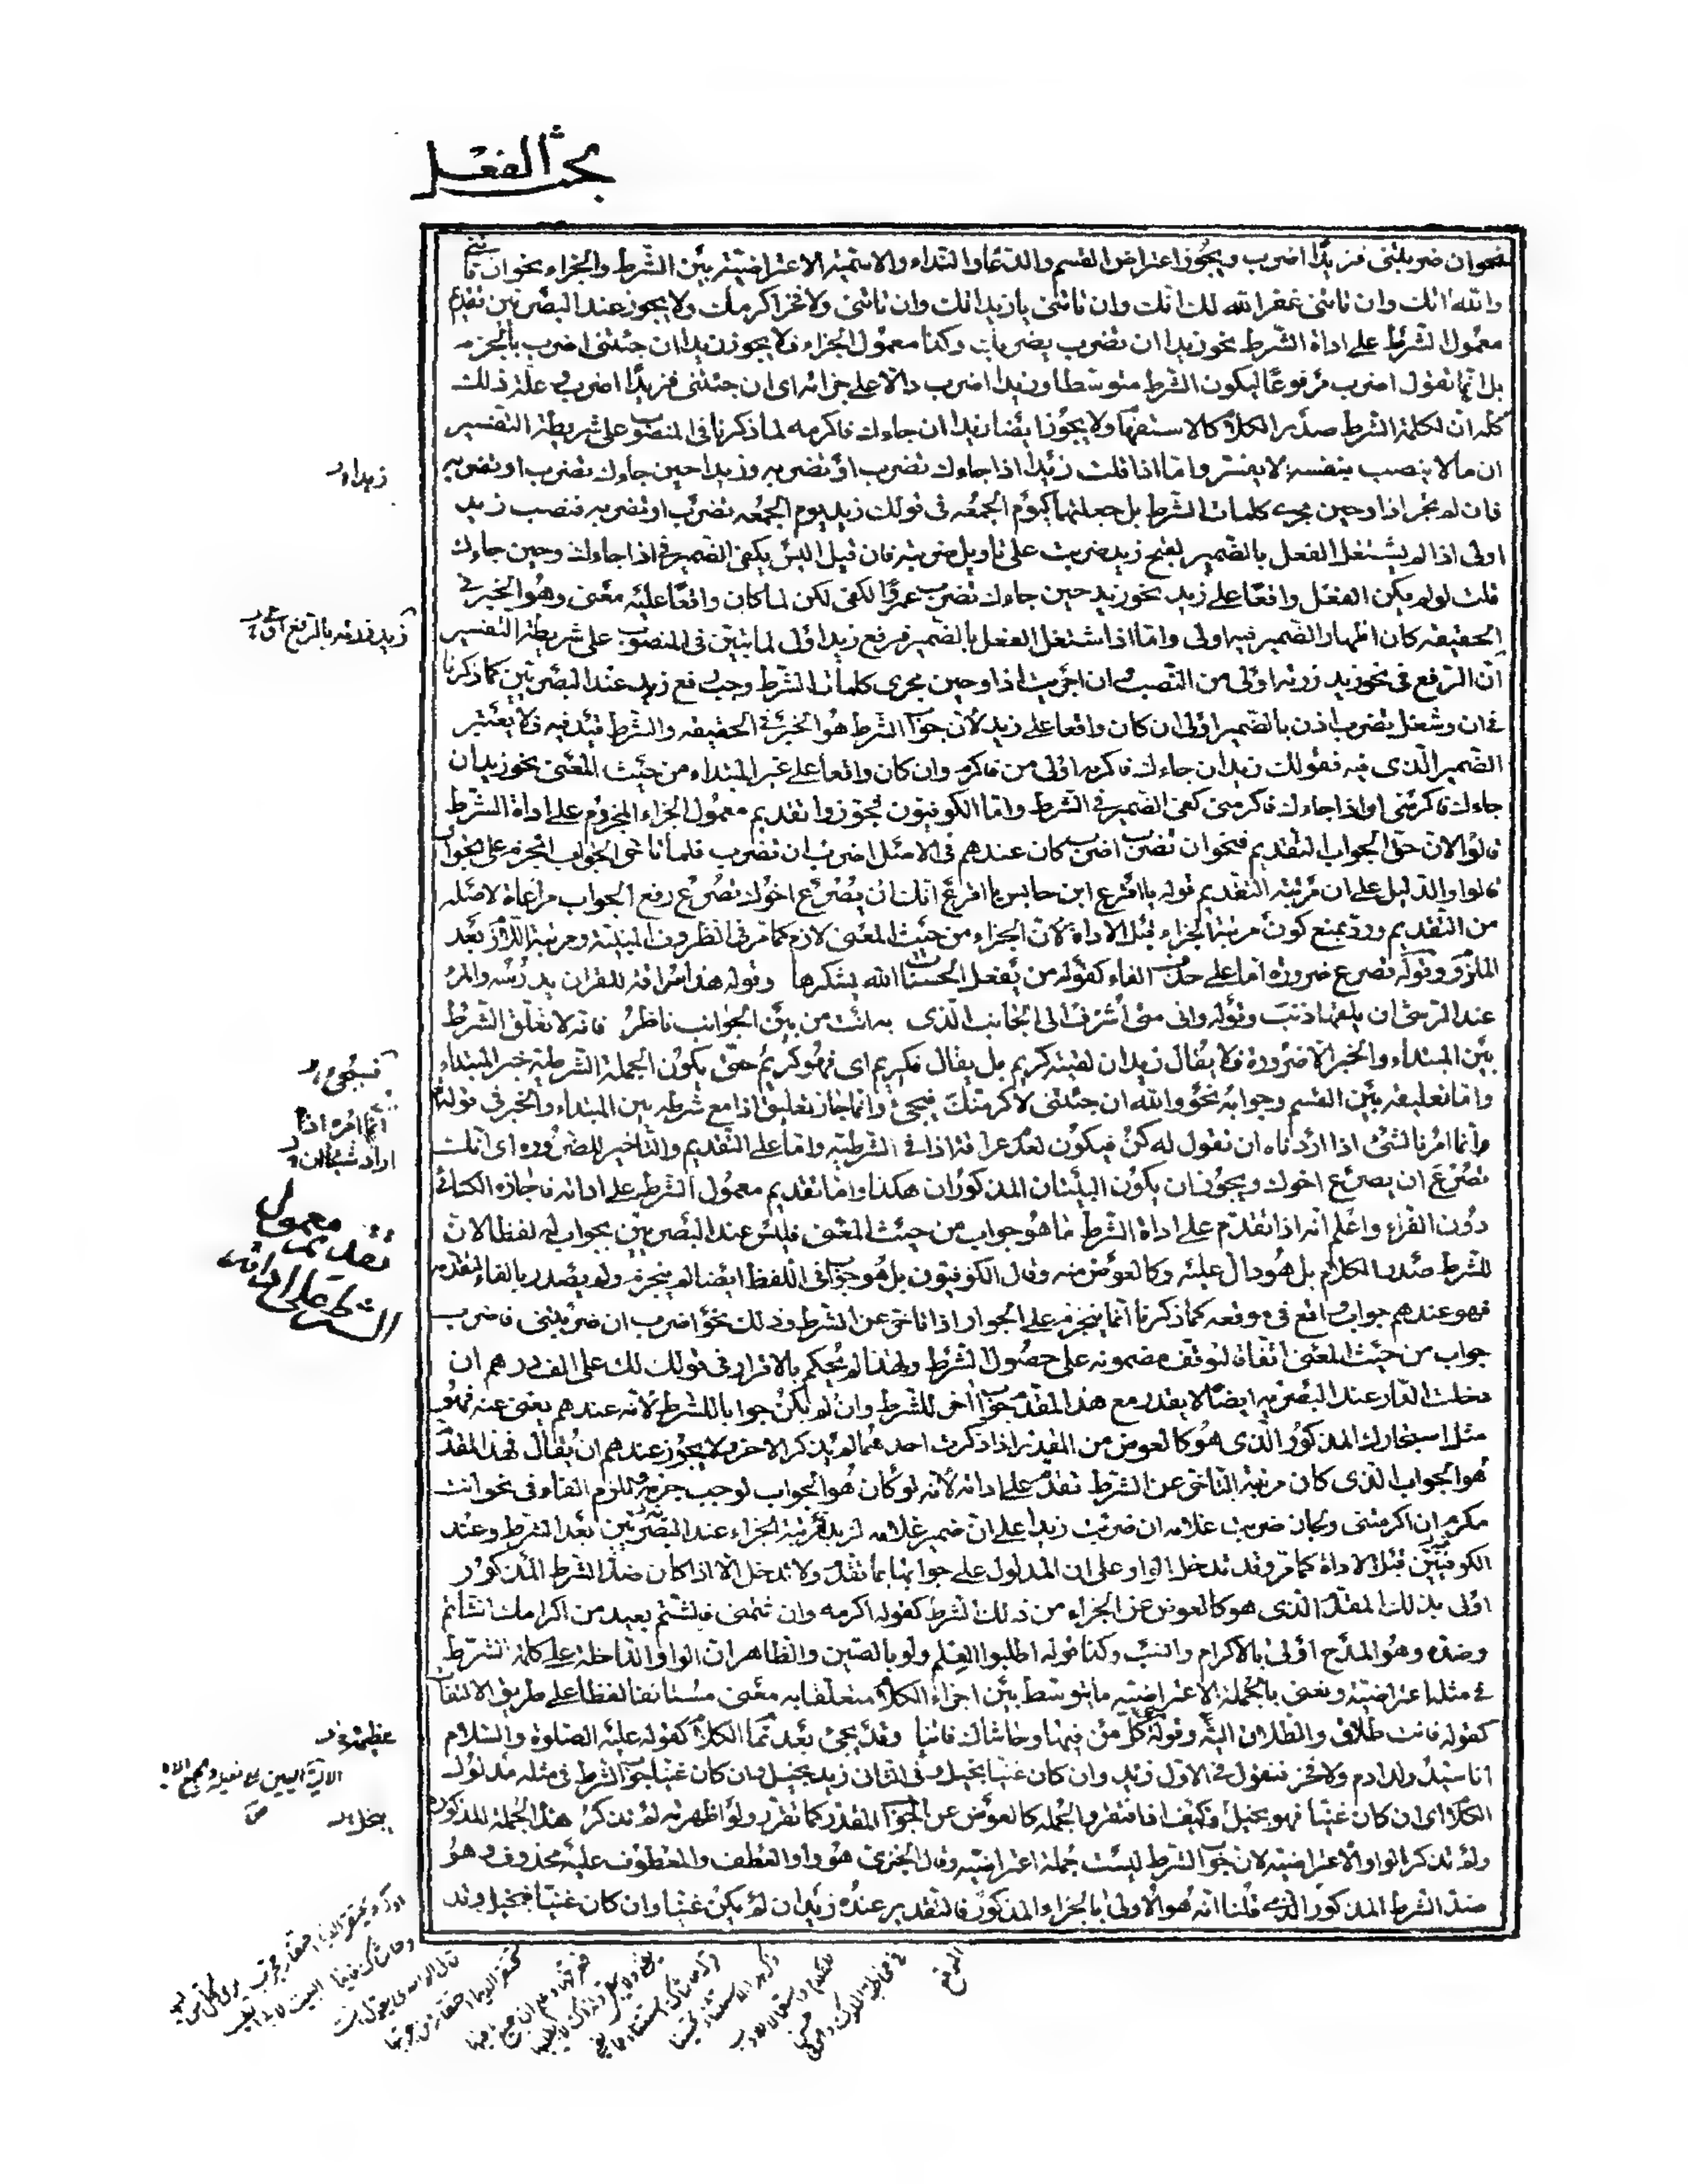 بحث الفعل
نحو ان ضربتنى فزيدًا اضرب ويجوز اعتراض القسم والدعا والنداء والاسمية الاعتراضية بين الشرط والجزاء نحو ان تأتنى
والله اتك وان تاتنى غفر الله لك اتك وان تاتنى يا زيد اتك وان تاتنى ولا فخر اكرمك ولا يجوز عند البصريين تقديم
معمول الشرط على اداة الشرط نحو زيدا ان تضرب يضربك وكذا معمول الجزاء فلا يجوز زيدا ان جئتنى اضرب بالجزم
بل انما تقول اضرب مرفوعا ليكون الشرط متوسطا وزيدا اضرب دالا على جزائه اى ان جئتنى فزيدًا اضرب وعلة ذلك
كله ان لكلمة الشرط صدر الكلام كالاستفهام ولا يجوز ايضا زيدا ان جاءك فاكرمه لما ذكرنا فى المنصوب على شريطة التفسير
ان ما لا ينصب بنفسه لا يفسر واما اذا قلت زيدا اذا جاءك تضرب او تضربه وزيدا حين جاءك تضرب او تضربه
فان لم يجر اذا وحين مجرى كلمات الشرط بل جعلتهما كيوم الجمعة فى قولك زيد يوم الجمعه تضرب او تضربه فنصب زيد
اولى اذا لم يشتغل الفعل بالضمير لقبح زيد ضربت على تاويل ضربته فان قيل اليس يكفى الضمير فى اذا جاءك وحين جاءك
قلت لو لم يكن الفعل واقعا على زيد نحو زيد حين جاءك تضرب عمرًا لكفى لكن لما كان واقعًا عليه معنى وهو الخبر فى
الحقيقه كان اظهار الضمير فيه اولى واما اذا اشتغل الفعل بالضمير فرفع زيد اولى لما تبين فى المنصوب على شريطة التفسير
ان الرفع فى نحو زيد زرته اولى من النصب وان اجريت اذا وحين مجرى كلمات الشرط وجب رفع زيد عند البصريين كما ذكرنا
فى ان وشغل تضرب اذن بالضمير اولى ان كان واقعا على زيد لان جواب الشرط هو الخبر فى الحقيقه والشرط قيد فيه فلا يعتبر
الضمير الذى فيه فقولك زيد ان جاءك فاكرمه اولى من فاكرم وان كان واقعا على غير المبتداء من حيث المعنى نحو زيد ان
جاءك فاكرمنى او اذا جاءك فاكرمنى كفى الضمير فى الشرط واما الكوفيون فجوزوا تقديم معمول الجزاء المجزوم على اداة الشرط
قالوا لان حق الجواب التقديم فنحو ان تضرب اضرب كان عندهم فى الاصل اضرب ان تضرب فلما تاخر الجواب انجزم على الجوار
قالوا والدليل على ان مرتبته التقديم قوله يا اقرع ابن حابس يا اقرع انك ان يصرع اخوك تصرع رفع الجواب مراعاة لاصله
من التقديم ورد بمنع كون مرتبة الجزاء قبل الاداة لان الجزاء من حيث المعنى لازم كما مر فى الظروف المبنية ومرتبة اللازم بعد
الملزوم وقوله تصرع ضرورة اما على حذف الفاء كقوله من يفعل الحسنات الله يشكرها وقوله هذا سراقة للقران يدرسه والمرء
عند الرشى ان يلقها ذئب وقوله وانى متى اشرف الى الجانب الذى به انت من بين الجوانب ناظر فانه لا تعلق الشرط
بين المبتداء والخبر الا ضرورة فلا يقال زيد ان لقيته كريم بل يقال فكريم اى فهو كريم حتى يكون الجملة الشرطية خبر المبتداء
واما تعليقه بين القسم وجوابه نحو والله ان جئتنى لاكرمنك فيجئ وانما جاز تعليق اذا مع شرطه بين المبتداء والخبر فى قوله
وانما امرنا لشئ اذا اردناه ان نقول له كن فيكون لعدم عراقة اذا فى الشرطية واما على التقديم والتاخير للضرورة اى انك
تصرع ان يصرع اخوك ويجوز ان يكون البيتان المذكوران هكذا واما تقديم معمول الشرط على اداته فاجازه الكسائى
دون الفراء واعلم انه اذا تقدم على اداة الشرط ما هو جواب من حيث المعنى فليس عند البصريين بجواب له لفظا لان
للشرط صدر الكلام بل هو دال عليه وكالعوض منه وقال الكوفيون بل هو جواب فى اللفظ ايضا لم ينجزم ولم يصدر بالفاء لتقدمه
فهو عندهم جواب واقع فى موقعه كما ذكرنا انما ينجزم على الجوار اذا تاخر عن الشرط وذلك نحو اضرب ان ضربتنى فاضرب
جواب من حيث المعنى اتفاقا لتوقف مضمونه على حصول الشرط ولهذا لم يحكم بالاقرار فى قولك لك على الف درهم ان
دخلت الدار عند البصريه ايضا لا يقدر مع هذا المقدم جواب اخر للشرط وان لم يكن جوابا للشرط لانه عندهم يغنى عنه فهو
مثل استجارك المذكور الذى هو كالعوض من المقدر اذا ذكرت احدهما لم يذكر الاخر ولا يجوز عندهم ان يقال فهذا المقدم
هو الجواب الذى كان مرتبته التاخر عن الشرط تقدم على اداته لانه لو كان هو الجواب لوجب جزمه وللزم الفاء فى نحو انت
مكرم ان اكرمتنى ولجاز ضربت غلامه ان ضربت زيدا على ان ضمير غلامه لزيد فمرتبة الجزاء عند البصريين بعد الشرط وعند
الكوفيين قبل الاداة كما مر وقد تدخل الواو على ان المدلول على جوابها بما تقدم ولا تدخل الا اذا كان ضد الشرط المذكور
اولى بذلك المقدم الذى هو كالعوض عن الجزاء من ذلك الشرط كقوله اكرمه وان شتمنى فالشتم بعيد من اكرامك الشاتم
وضده وهو المدح اولى بالاكرام وكذا قوله اطلبوا العلم ولو بالصين والظاهر ان الواو الداخلة على كلمة الشرط
فى مثله اعتراضية ونعنى بالجملة الاعتراضية ما يتوسط بين اجزاء الكلام متعلقا به معنى مستانفا لفظا على طريق الالتفات
كقوله فانت طلاق والطلاق الية وقوله كل من فيها وحاشاك فانيا وقد يجئ بعد تمام الكلام كقوله عليه الصلوة والسلام
انا سيد ولد ادم ولا فخر فنقول فى الاول زيد وان كان غنيا بخيل وفى الثانى زيد بخيل وان كان غنيا جواب الشرط فى مثله مدلول
الكلام اى ان كان غنيا فهو بخيل فكيف اذا افتقر والجملة كالعوض عن الجواب المقدر كما تقرر ولو اظهرته لم تذكر هذه الجملة المذكورة
ولم تذكر الواو الاعتراضية لان جواب الشرط ليست جملة اعتراضية وقال الجنزى هو واو العطف والمعطوف عليه محذوف وهو
ضد الشرط المذكور الذى قلنا انه هو الاولى بالجزاء المذكور فالتقدير عنده زيد ان لم يكن غنيا وان كان غنيا فبخيل وقد
زيدا
زيد قد لقيته بالرفع
فيجئ
انما امره اذا
اراد شيئا ان
تقديم معمول
الشرط على اداته
عظيمة
الالية اليمين
بخلا